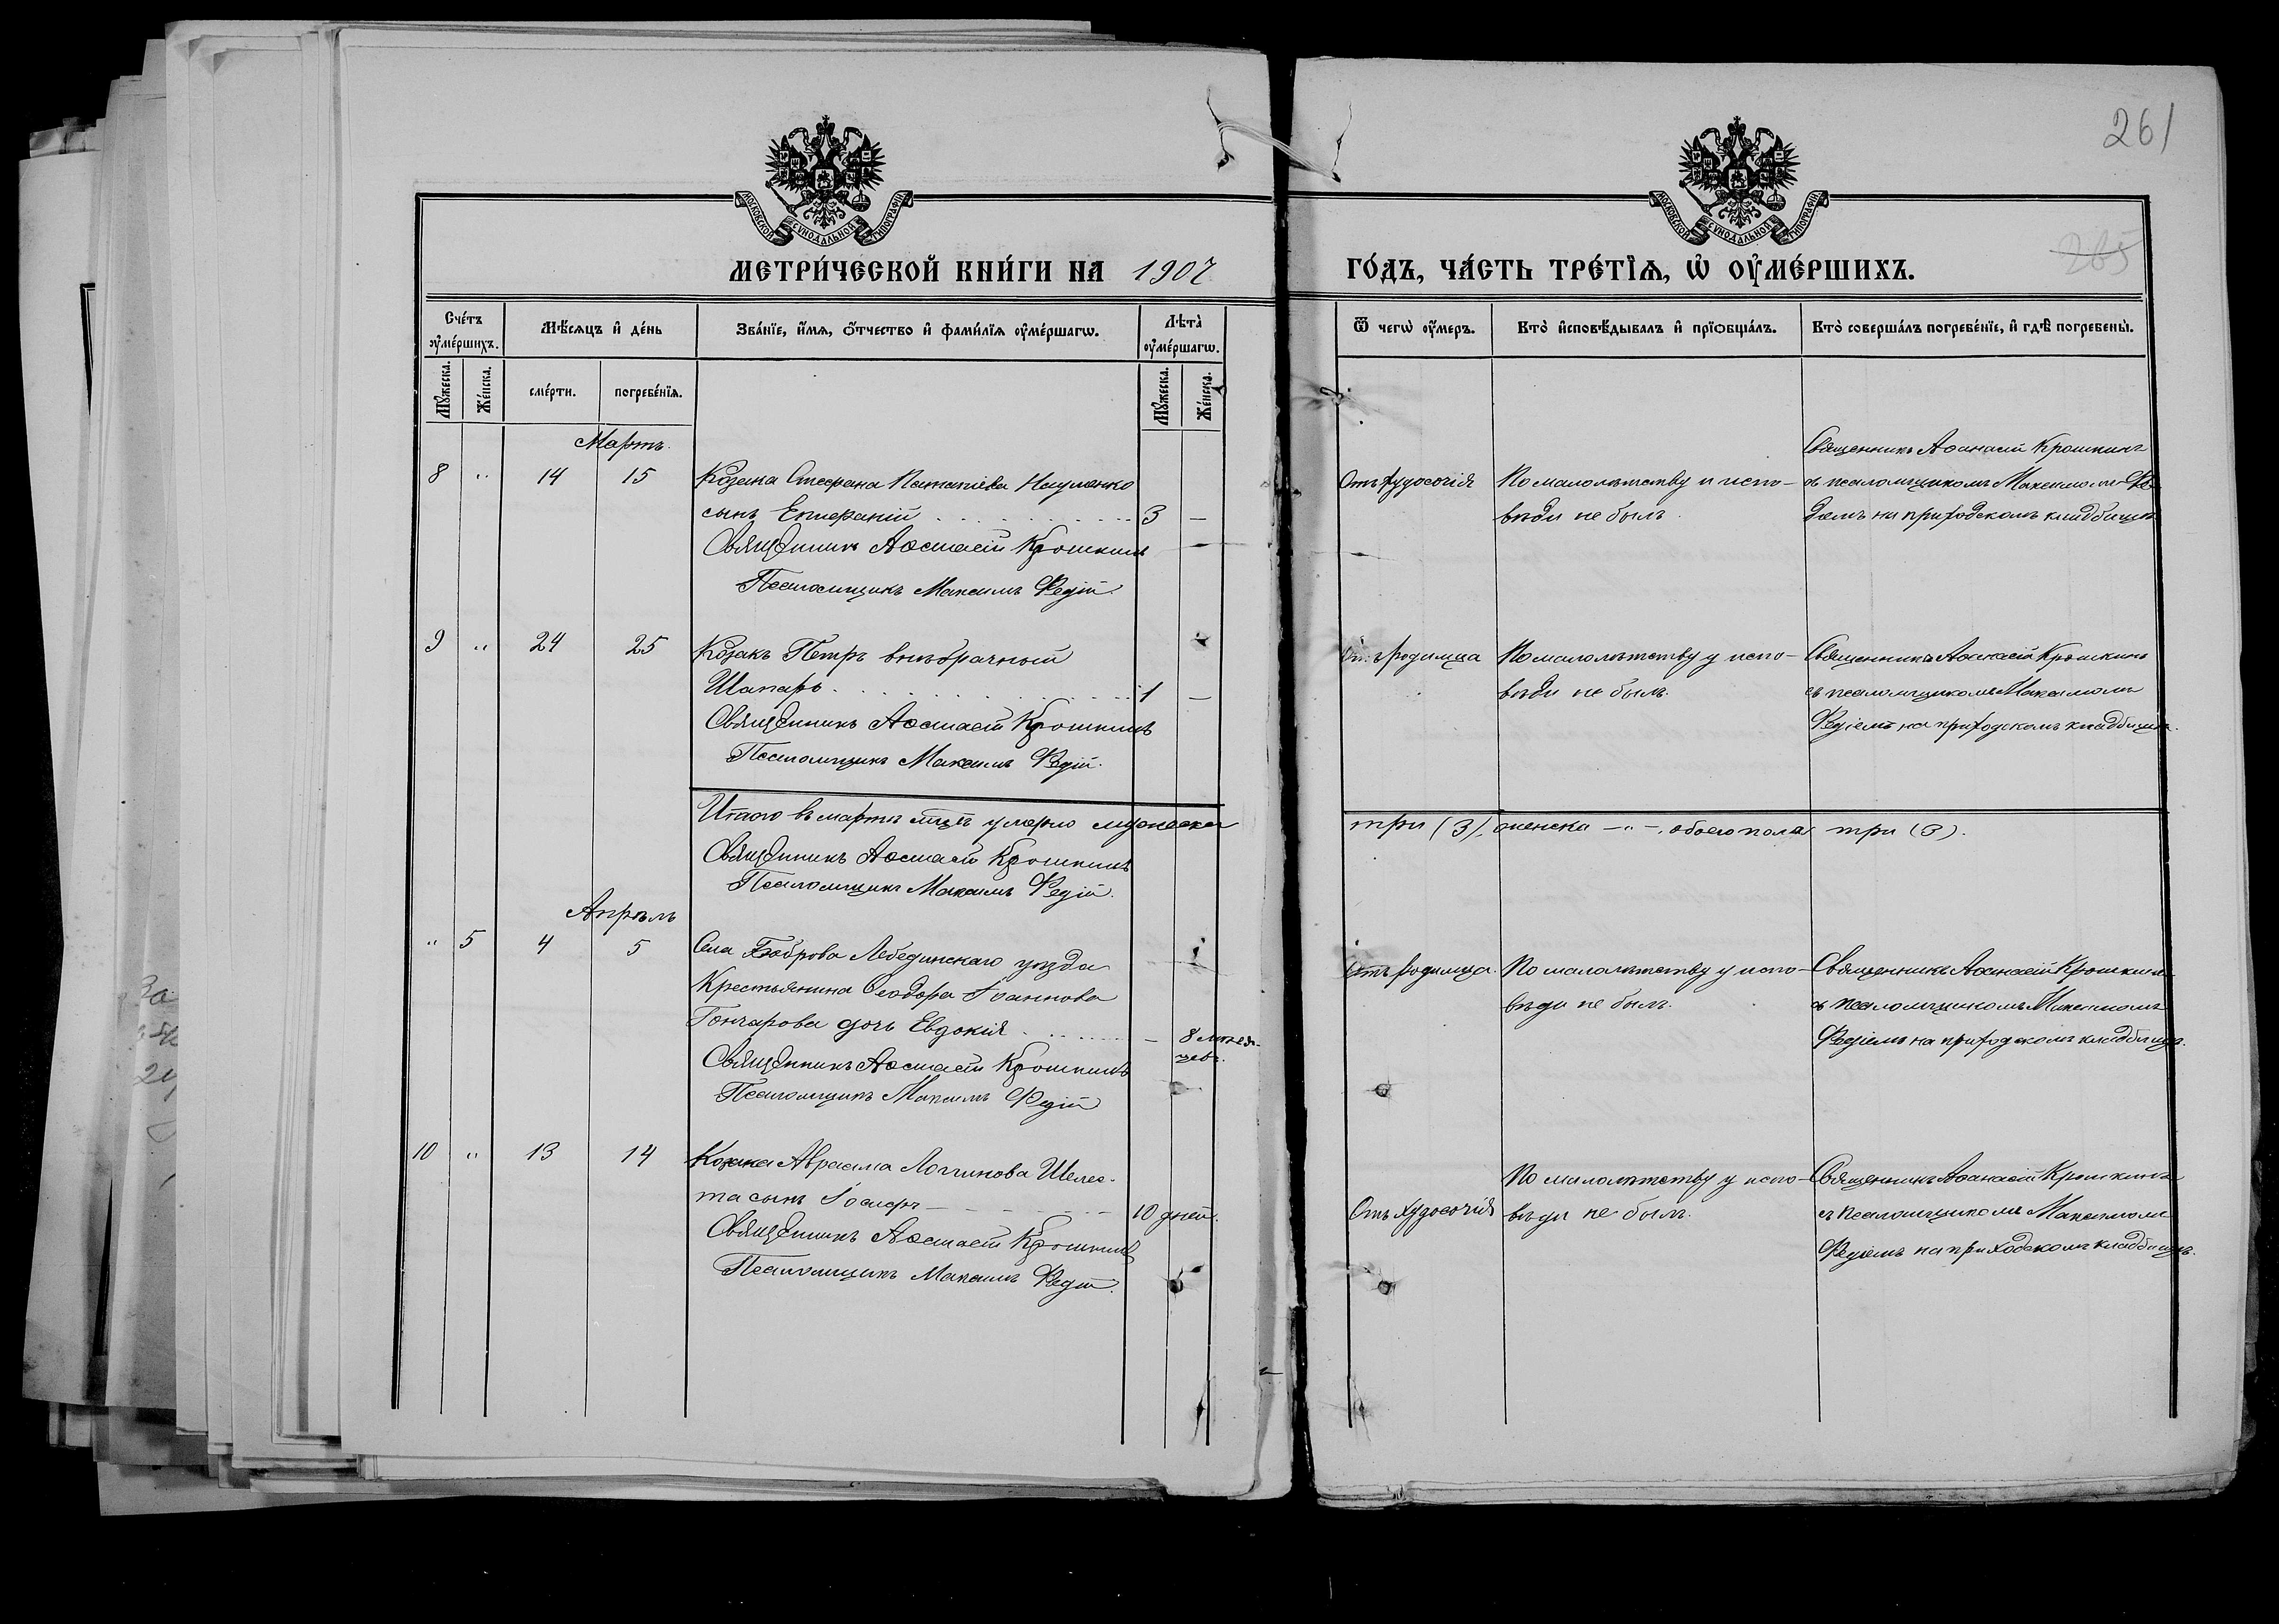 261
265
МОСКОВСКОЙ СѴНОДАЛЬНОЙ ТИПОГРАФІИ
МОСКОВСКОЙ СѴНОДАЛЬНОЙ ТИПОГРАФІИ
МЕТРИ́ЧЕСКОЙ КНИ́ГИ НА 1907
ГО́ДЪ, ЧА́СТЬ ТРЕ́ТІѦ, Ѡ ОУ҆МЕ́РШИХЪ.
Сче́тъ оу҆ме́ршихъ.
Мѣ́сяцъ и҆ де́нь
Зва́нїе, и҆́мѧ, ѻ҆́тчество и҆ фами́лїѧ оу҆ме́ршагѡ.
Лѣта̀ оу҆ме́ршагѡ.
Ѿ чегѡ̀ оу҆́меръ.
Кто̀ и҆сповѣ́дывалъ и҆ прїѡбща́лъ.
Кто̀ соверша́лъ погребе́нїе, и҆ гдѣ̀ погребены̀.
Мꙋ́жеска. Же́нска.
сме́рти. погребе́нїѧ.
Мꙋ́жеска. Же́нска.
Мартъ.
8 " 14 15 Козака Стефана Потапіева Науменко
сынъ Епифаній 3 —
Священникъ Аѳанасій Крошкинъ
Псаломщикъ Максимъ Федій.
Отъ худосочія
По малолѣтству у испо-
вѣди не былъ.
Священникъ Аѳанасій Крошкинъ
съ псаломщикомъ Максимомъ Фе-
діемъ на приходскомъ кладбищѣ
9 " 24 25 Козакъ Петръ внѣбрачный
Шапаръ 1 —
Священникъ Аѳанасій Крошкинъ
Псаломщикъ Максимъ Федій.
Отъ родимца
По малолѣтству у испо-
вѣди не былъ.
Священникъ Аѳанасій Крошкинъ
съ псаломщикомъ Максимомъ
Федіемъ на приходскомъ кладбищѣ.
Итого въ мартѣ мцѣ умерло мужеска
три (3), женска — " —, обоего пола три (3).
Священникъ Аѳанасій Крошкинъ
Псаломщикъ Максимъ Федій.
Апрѣль
" 5 4 5 Села Боброва Лебединскаго уѣзда
Крестьянина Ѳеодора Іоаннова
Гончарова дочь Евдокія — 8 мѣся-
цевъ.
Священникъ Аѳанасій Крошкинъ
Псаломщикъ Максимъ Федій
Отъ родимца.
По малолѣтству у испо-
вѣди не былъ.
Священникъ Аѳанасій Крошкинъ
съ псаломщикомъ Максимомъ
Федіемъ на приходскомъ кладбищѣ.
10 " 13 14 Козака Авраама Логгинова Шелес-
та сынъ Іосифъ 10 дней.
Священникъ Аѳанасій Крошкинъ
Псаломщикъ Максимъ Федій.
Отъ худосочія
По малолѣтству у испо-
вѣди не былъ.
Священникъ Аѳанасій Крошкинъ
съ псаломщикомъ Максимомъ
Федіемъ на приходскомъ кладбищѣ.